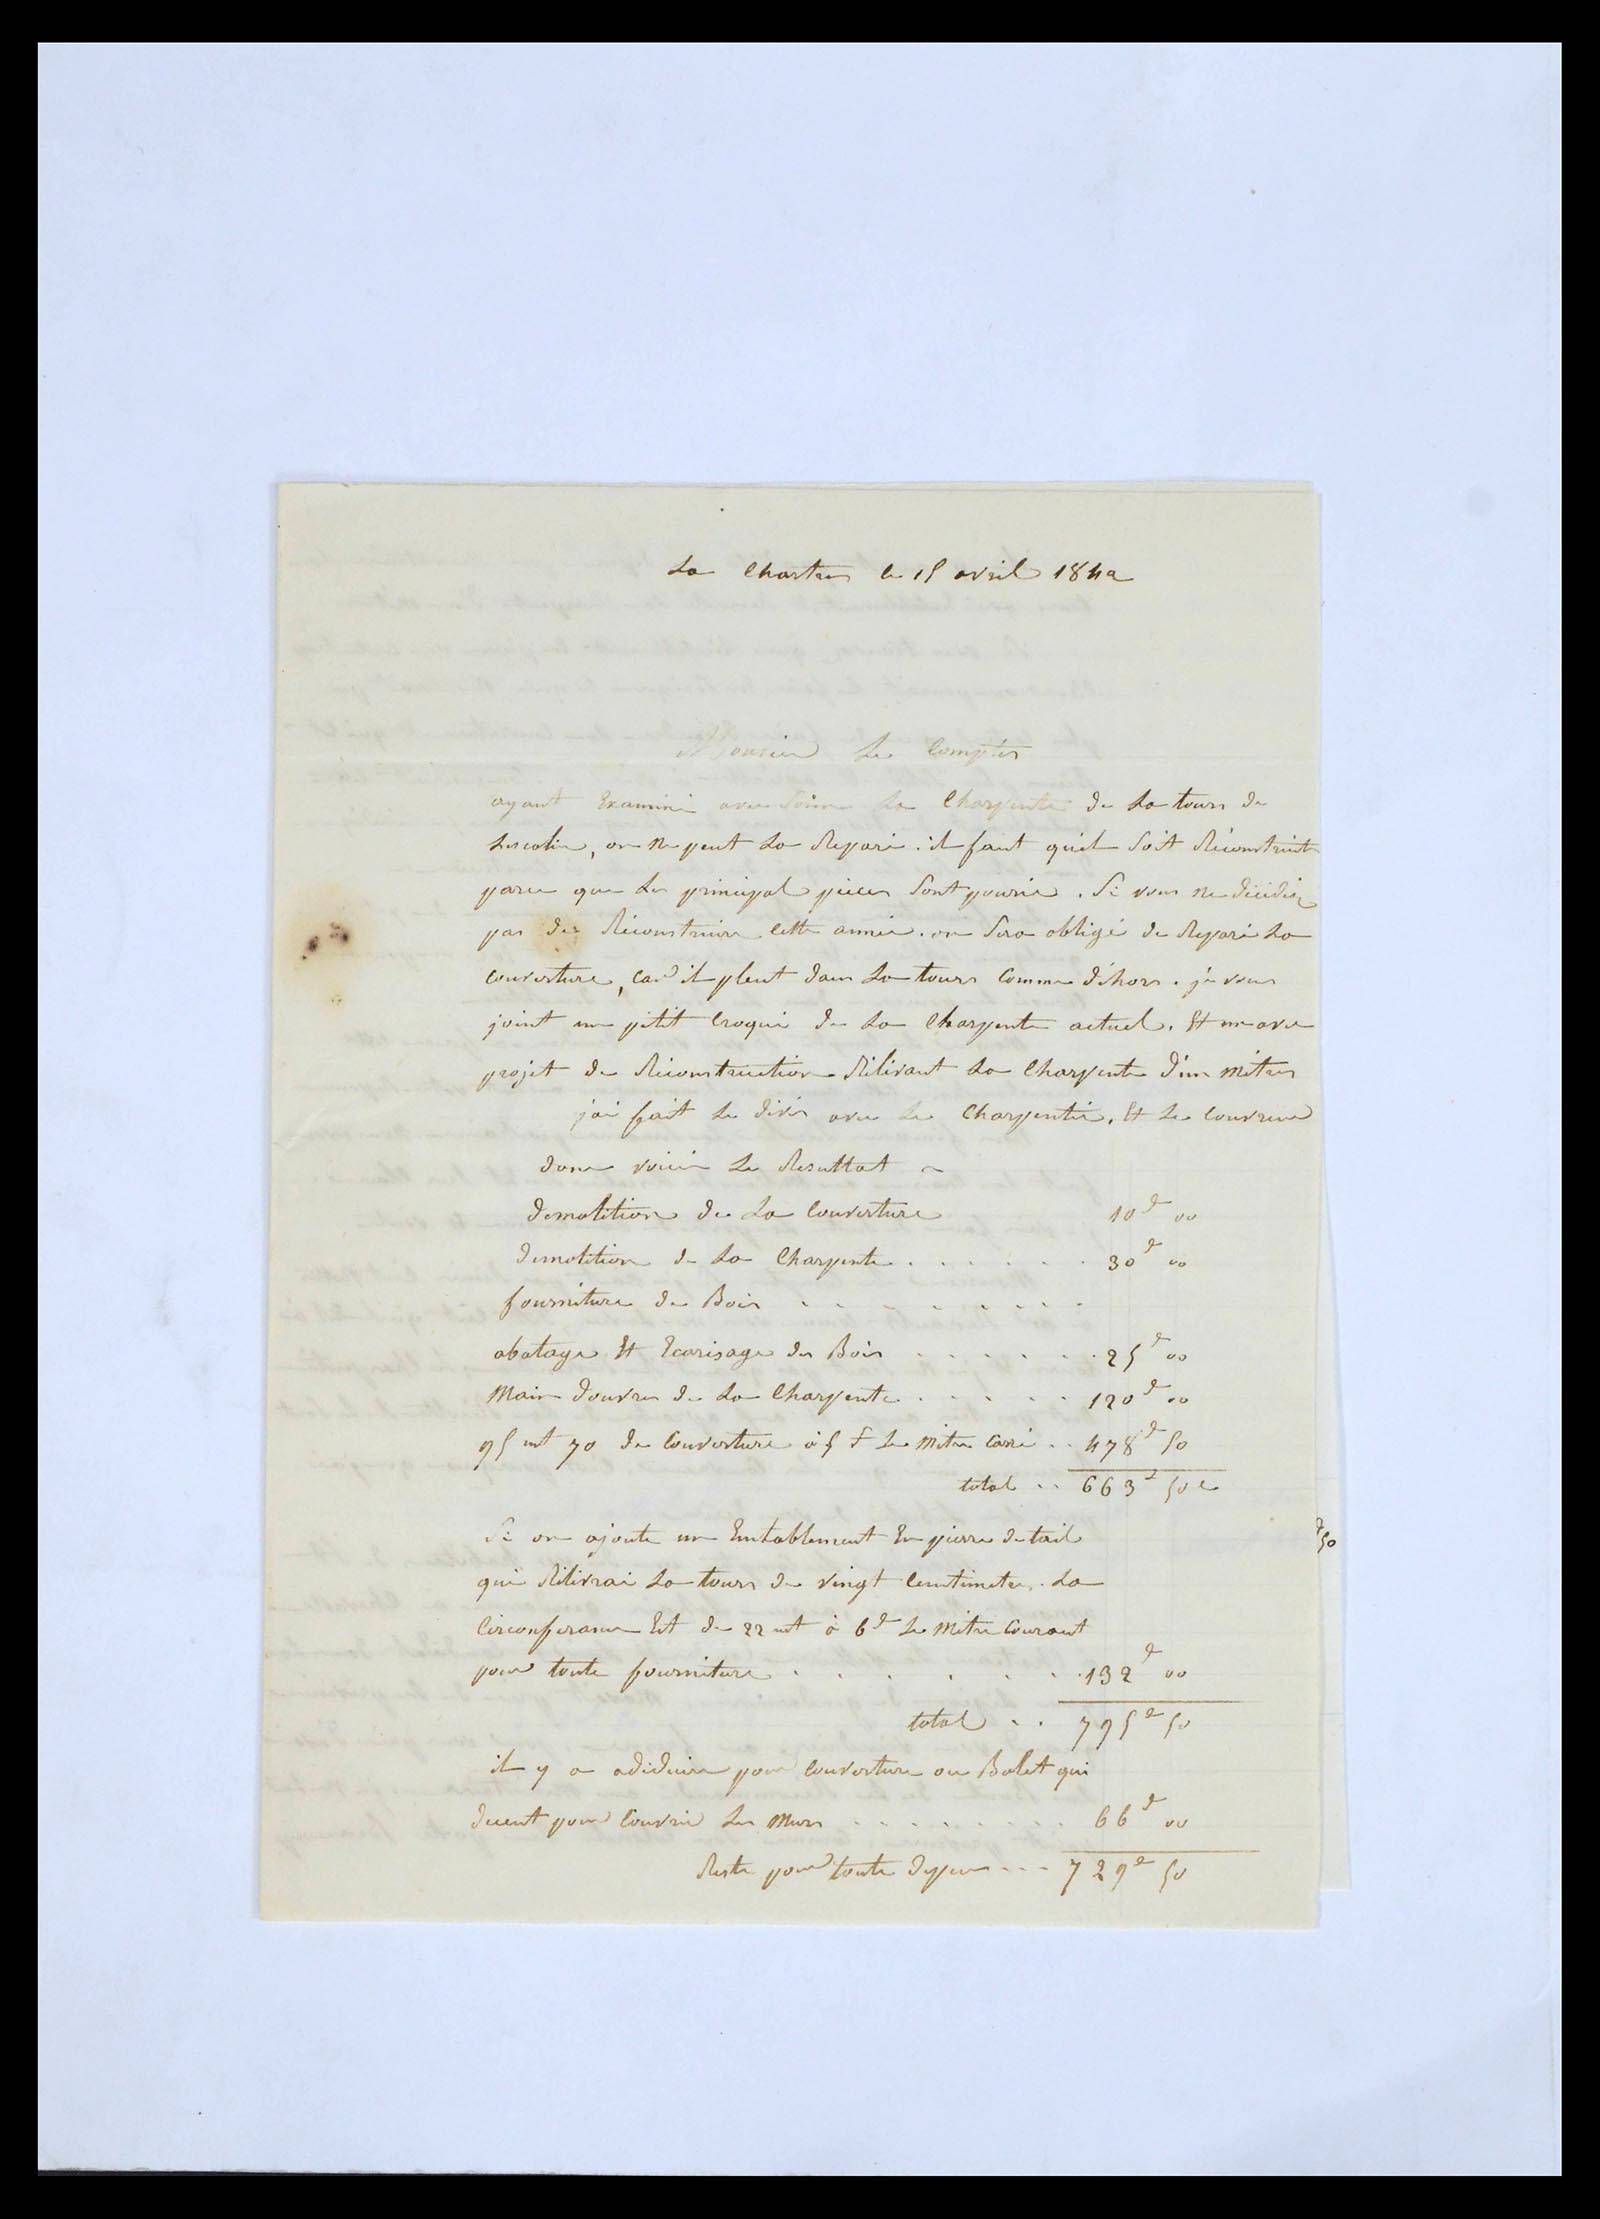 La Chartre le 15 avril 1842
Monsieur Le Compte
ayant Examiné avec Soin La Charpente de La tours de
Lescalier, on ne peut La Reparé. il faut quil Soit Réconstruit
parce que Les principal pieces Sont pourie. Si vous ne décidié
pas de Réconstruire cette année. on Sera obligé de Reparé La
couverture, car il pleut dans La tours Comme déhors. je vous
joint un pétit Croqui de La Charpente actuel. Et un avec
projet de Réconstruction Rélévant La Charpente d'un métres
j'ai fait Le dévis avec Le Charpentié. Et Le Couvreur
dons voicie Le Resultat
démolition de La Couverture 10 00
démolition de La Charpente . . . . . . 30 00
fourniture de Bois . . . . . . . .
abatage Et Ecarisage des Bois . . . . . . 25 00
Main douvre de La Charpente . . . . . 120 00
95 mt 70 de Couverture à 5 f Le Mètre Caré . . 478 50
total . . 663 50 c
Si on ajoute un Entablement En pierre de tail
qui Rélévrai La tours de vingt Centimetre. La
Circonferance Est de 22 mt à 6 Le Mètre Courant
pour toute fourniture . . . . . . . 132 00
total . . 795 50
il y a adéduire pour Couverture au Balet qui
pour Couvrir Les Murs . . . . . . . . 66 00
Reste pour toute depence . . . 729 50
50